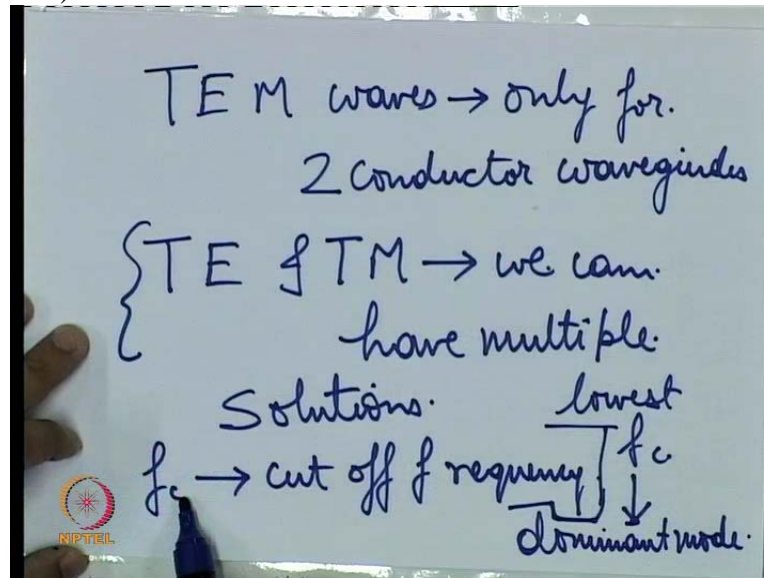 TEM waves → only for.
2 conductor waveguides
{TE & TM → we can.
have multiple.
Solutions.
lowest
fc → cut off frequency
fc
↓
dominant mode.
NPTEL